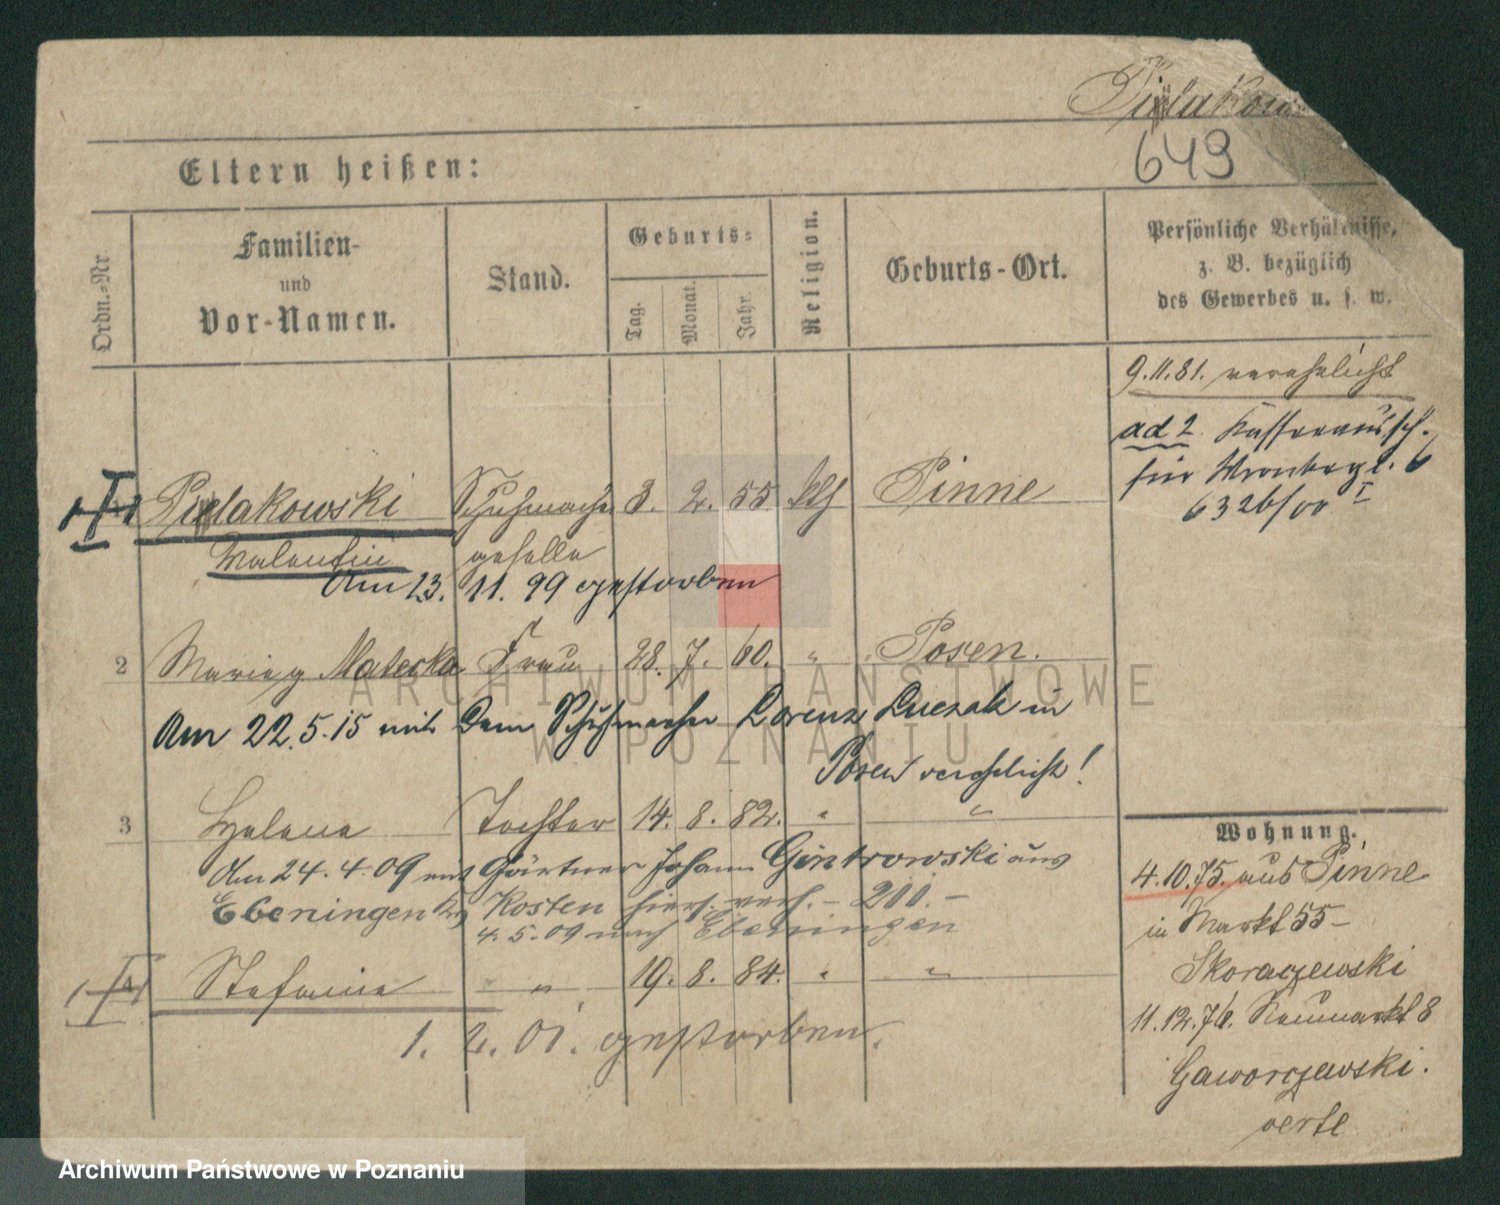 Pielakows
649
Eltern heißen:
Ordn.-Nr.
Familien-
und
Vor-Namen.
Stand.
Geburts-
Tag.
Monat.
Jahr.
Religion.
Geburts-Ort.
Persönliche Verhältnisse,
z. B. bezüglich
des Gewerbes u. s. w.
9.11.81. verehelicht
ad 2
für
6326/00 I
1 Pielakowski Schuhmacher 3. 2. 55. kth Pinne
Valentin geselle
Am 13. 11. 99 gestorben
2 Maria g Matecka Frau 28. 7. 60. " Posen.
Am 22.5.15 mit dem Schuhmacher Lorenz Luczak in
Posen verehelicht!
3 Helena Tochter 14. 8. 82. " "
Am 24.4.09 mit Gärtner Johann Gintrowski aus
Ebeningen Kosten hiers. verh. - 211. -
4.5.09 nach Ebeningen
4 Stefania " 19. 8. 84. " "
1. 2. 01. gestorben.
Wohnung.
4.10.75. aus Pinne
in Markt 55-
Skoraczewski
11.12.76. Neumarkt 8
Gaworczewski.
verte
ARCHIWUM PAŃSTWOWE
W POZNANIU
Archiwum Państwowe w Poznaniu